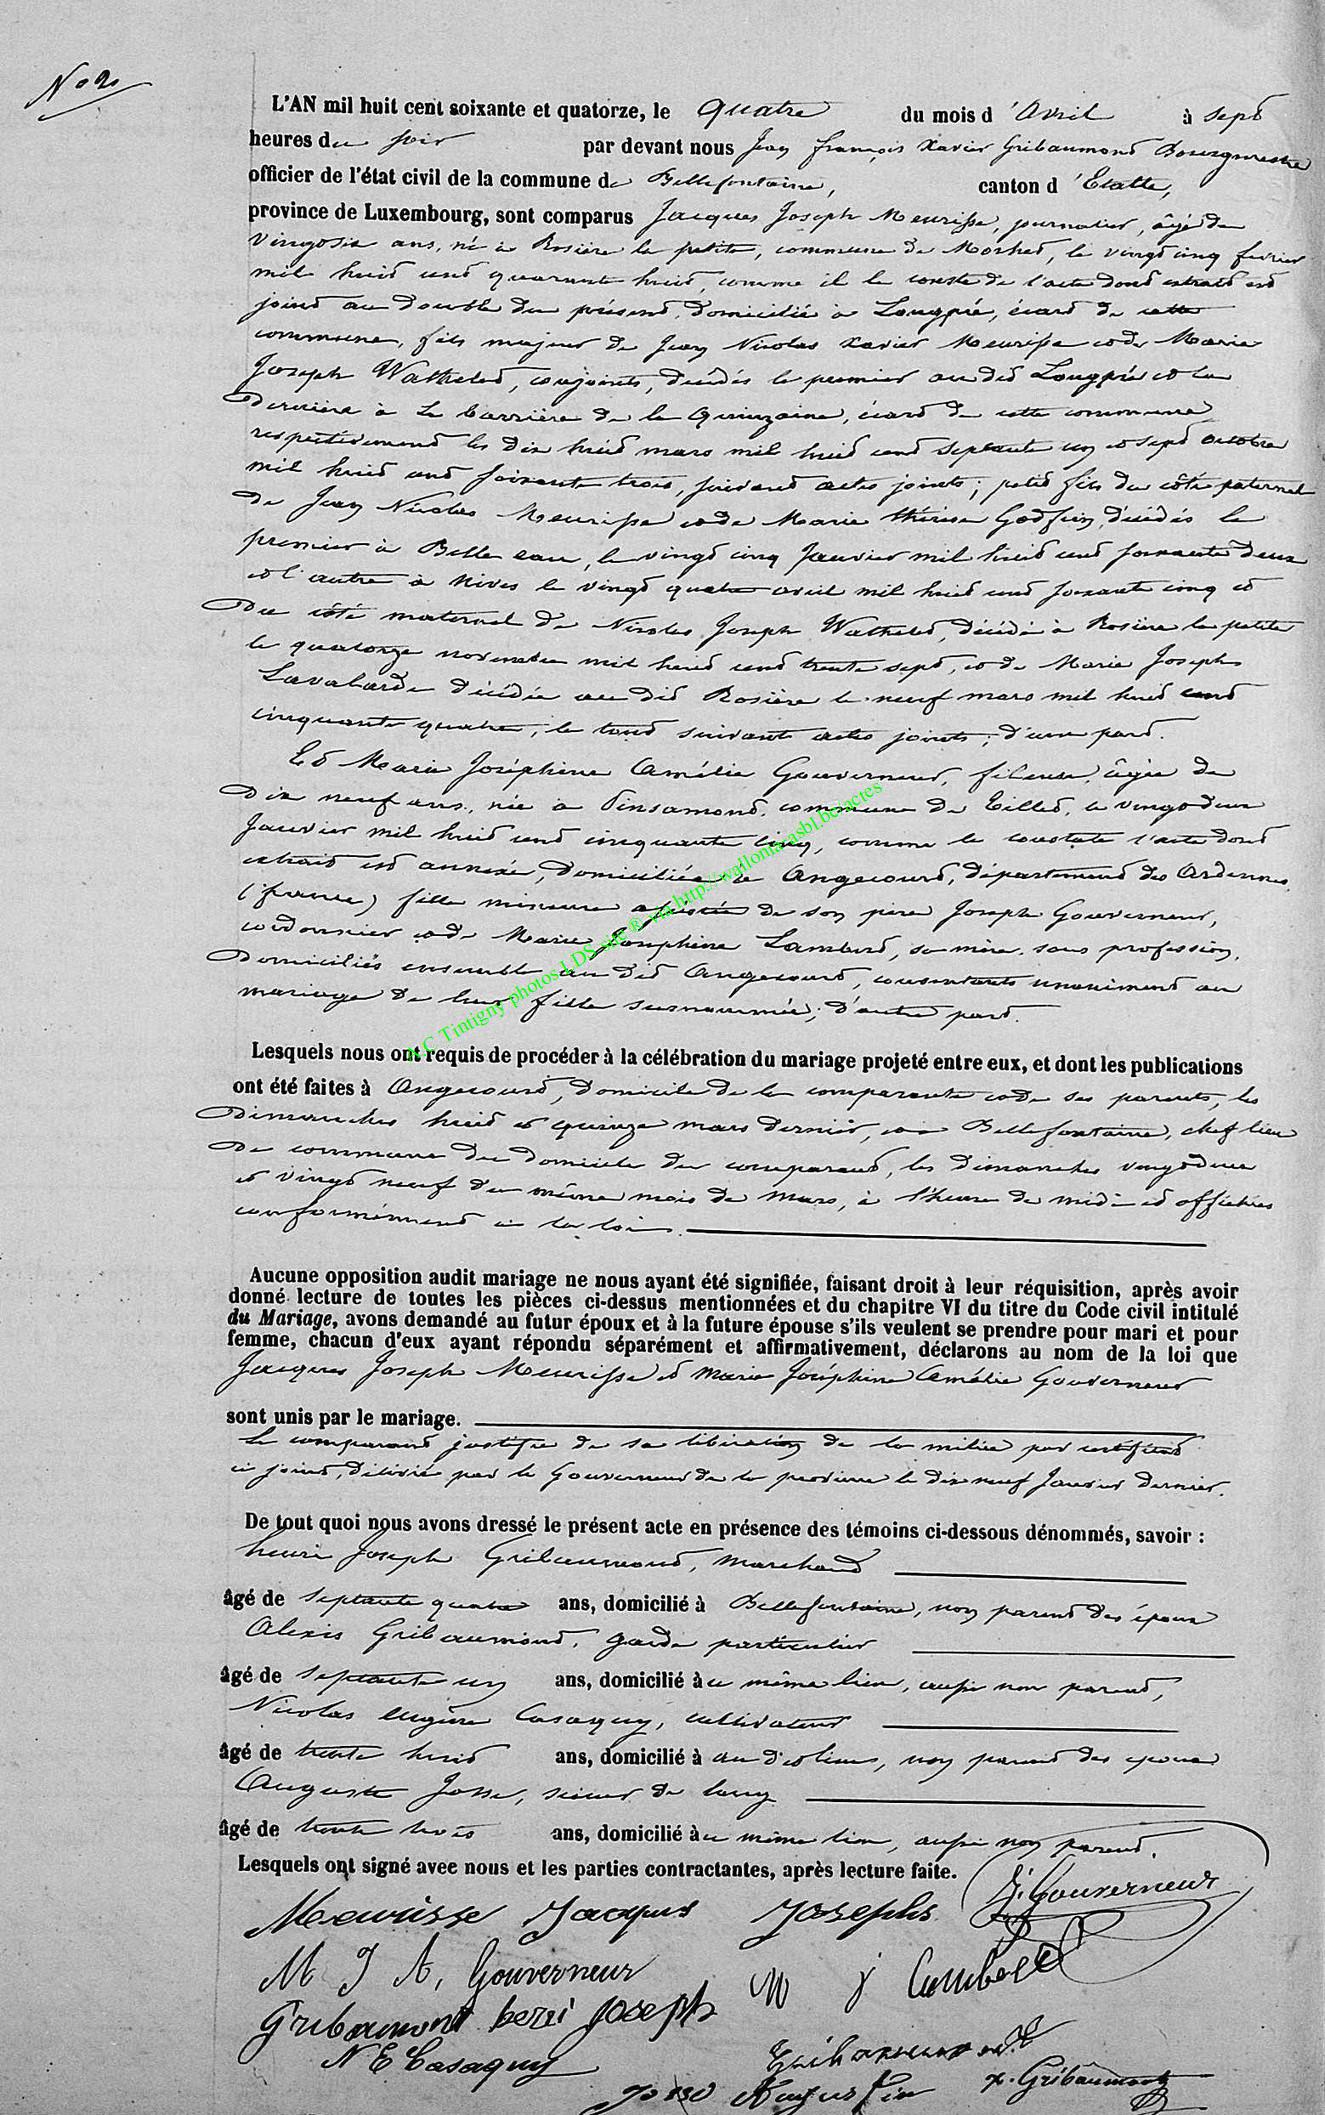 No 2
L'AN mil huit cent soixante et quatorze, le quatre du mois d'Avril à sept
heures du soir par devant nous Jean françois Xavier Gribaumont Bourgmestre
officier de l'état civil de la commune de Bellefontaine, canton d'Etalle,
province de Luxembourg, sont comparus Jacques Joseph Meurisse, journalier, âgé de
vingt six ans, né à Rosière la petite, commune de Morhet, le vingt cinq fevrier
mil huit cent quarante huit, comme il le conste de l'acte dont extrait est
joint au double du présent, domicilié à Lougpré, écart de cette
commune, fils majeur de Jean Nicolas Xavier Meurisse et de Marie
Joseph Wathelet, conjoints, décédés le premier au dit Lougpré et la
dernière à la barrière de la Quinzaine, écart de cette commune
respectivement les dix huit mars mil huit cent septante un et sept octobre
mil huit cent soixante trois, suivant actes joints; petit fils du côté paternel
de Jean Nicolas Meurisse et de Marie thérèse Godfrin, décédés le
premier à Belle eau, le vingt cinq Janvier mil huit cent soixante deux
et l'autre à Nives le vingt quatre avril mil huit cent soixante cinq et
du côté maternel de Nicolas Joseph Wathelet, décédé à Rosière la petite
le quatorze novembre mil huit cent trente sept, et de Marie Joseph
Lavalarde décédée au dit Rosière le neuf mars mil huit cent
cinquante quatre, le tout suivant actes joints; d'une part.
Et Marie Joséphine Amélie Gouverneur, fileuse, âgée de
dix neuf ans, née à Pinsamont, commune de Tillet, le vingt deux
Janvier mil huit cent cinquante cinq, comme le constate l'acte dont
extrait est annexé, domiciliée à Angecourt, département des Ardennes
(france) fille mineure assistée de son père Joseph Gouverneur,
cordonnier et de Marie Josephine Lambert, sa mère sans profession,
domiciliés ensemble au dit Angecourt, consentants unanimement au
mariage de leur fille susnommée; d'autre part.
A.C Tintigny photos LDS site ® via http://wallonia-asbl.be/actes
Lesquels nous ont requis de procéder à la célébration du mariage projeté entre eux, et dont les publications
ont été faites à Angecourt, domicile de la comparante et de ses parents, les
dimanches huit et quinze mars dernier, et à Bellefontaine, chef lieu
de commune du domicile du comparant, les dimanches vingt deux
et vingt neuf du même mois de mars, à l'heure de midi et affichées
conformément à la loi.
Aucune opposition audit mariage ne nous ayant été signifiée, faisant droit à leur réquisition, après avoir
donné lecture de toutes les pièces ci-dessus mentionnées et du chapitre VI du titre du Code civil intitulé
du Mariage, avons demandé au futur époux et à la future épouse s'ils veulent se prendre pour mari et pour
femme, chacun d'eux ayant répondu séparément et affirmativement, déclarons au nom de la loi que
Jacques Joseph Meurisse et Marie Joséphine Amélie Gouverneur
sont unis par le mariage.
Le comparant justifie de sa libération de la milice par certificat
ci joint, délivré par le Gouverneur de la province le dix neuf Janvier dernier.
De tout quoi nous avons dressé le présent acte en présence des témoins ci-dessous dénommés, savoir :
henri Joseph Gribaumont, marchand
âgé de septante quatre ans, domicilié à Bellefontaine, non parent des époux
Alexis Gribaumont, garde particulier
âgé de septante un ans, domicilié au même lieu, aussi non parent,
Nicolas Eugène Casaquy, cultivateur
âgé de trente huit ans, domicilié à au dit lieu, non parent des époux
Auguste Josse, scieur de long
âgé de trente trois ans, domicilié au même lieu, aussi non parent.
Lesquels ont signé avec nous et les parties contractantes, après lecture faite.
J. Gouverneur
Meurisse Jacques Josephs
M J A, Gouverneur M J Lambert
Gribaumont henri Joseph
N E Casaquy Gribaumont
Josse Augustin x. Gribaumont